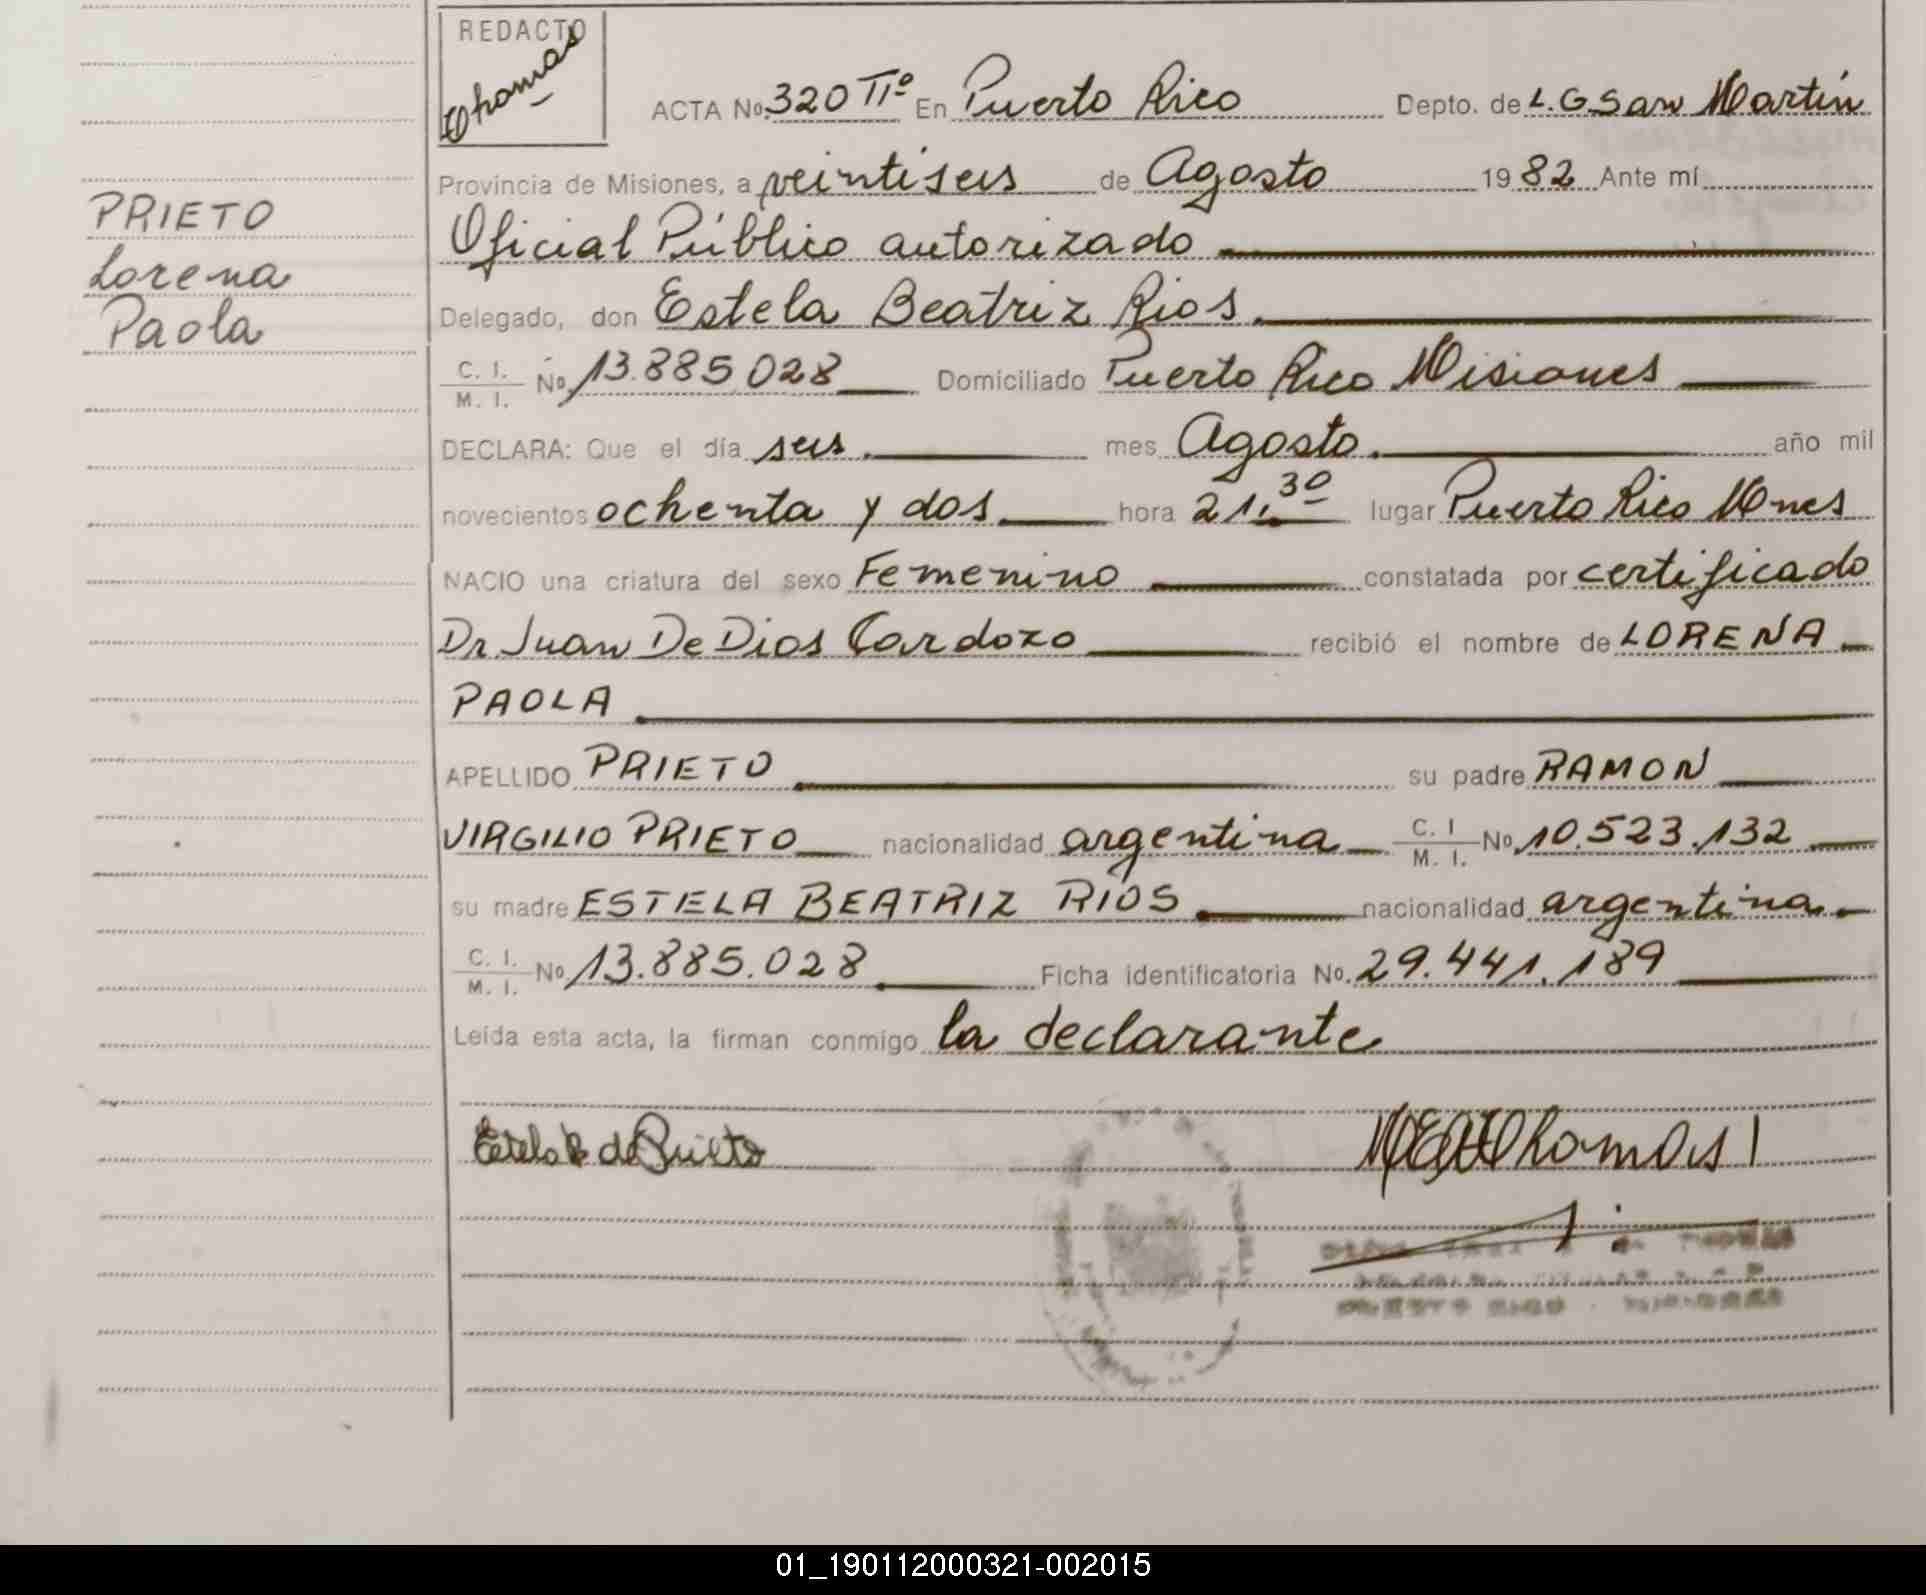 REDACTO
Thomas
ACTA No. 320 Tº En Puerto Rico Depto. de L. G. San Martín
Provincia de Misiones, a veintiseis de Agosto 1982 Ante mí
Oficial Público autorizado
Delegado, don Estela Beatriz Rios.
C. I.
M. I. No. 13.885.028 Domiciliado Puerto Rico Misiones
DECLARA: Que el día seis. mes Agosto. año mil
novecientos ochenta y dos. hora 21.30 lugar Puerto Rico Mnes
NACIO una criatura del sexo Femenino constatada por certificado
Dr. Juan De Dios Cardozo recibió el nombre de LORENA
PAOLA
APELLIDO PRIETO su padre RAMON
VIRGILIO PRIETO nacionalidad argentina C. I
M. I. No. 10.523.132
su madre ESTELA BEATRIZ RIOS. nacionalidad argentina.
C. I.
M. I. No. 13.885.028 Ficha identificatoria No. 29.441.189
Leída esta acta, la firman conmigo la declarante
PRIETO
Lorena
Paola
Estela R de Prieto
PUERTO RICO - MISIONES
01_190112000321-002015